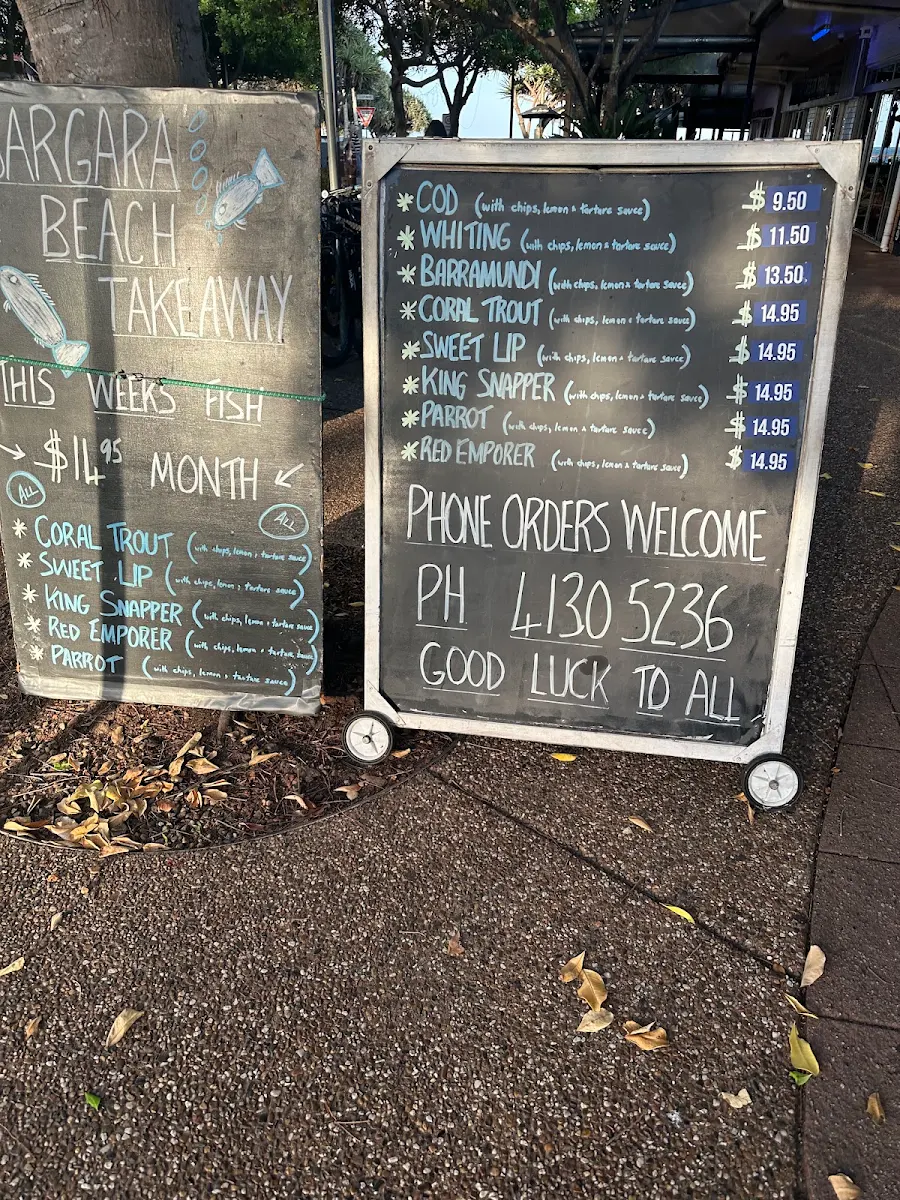 BARGARA
BEACH
TAKEAWAY
THIS WEEKS FISH
$14.95 MONTH
ALL
ALL
* CORAL TROUT (with chips, lemon & tartare sauce)
* SWEET LIP (with chips, lemon & tartare sauce)
* KING SNAPPER (with chips, lemon & tartare sauce)
* RED EMPORER (with chips, lemon & tartare sauce)
* PARROT (with chips, lemon & tartare sauce)
* COD (with chips, lemon & tartare sauce) $ 9.50
* WHITING (with chips, lemon & tartare sauce) $ 11.50
* BARRAMUNDI (with chips, lemon & tartare sauce) $ 13.50
* CORAL TROUT (with chips, lemon & tartare sauce) $ 14.95
* SWEET LIP (with chips, lemon & tartare sauce) $ 14.95
* KING SNAPPER (with chips, lemon & tartare sauce) $ 14.95
* PARROT (with chips, lemon & tartare sauce) $ 14.95
* RED EMPORER (with chips, lemon & tartare sauce) $ 14.95
PHONE ORDERS WELCOME
PH 4130 5236
GOOD LUCK TO ALL